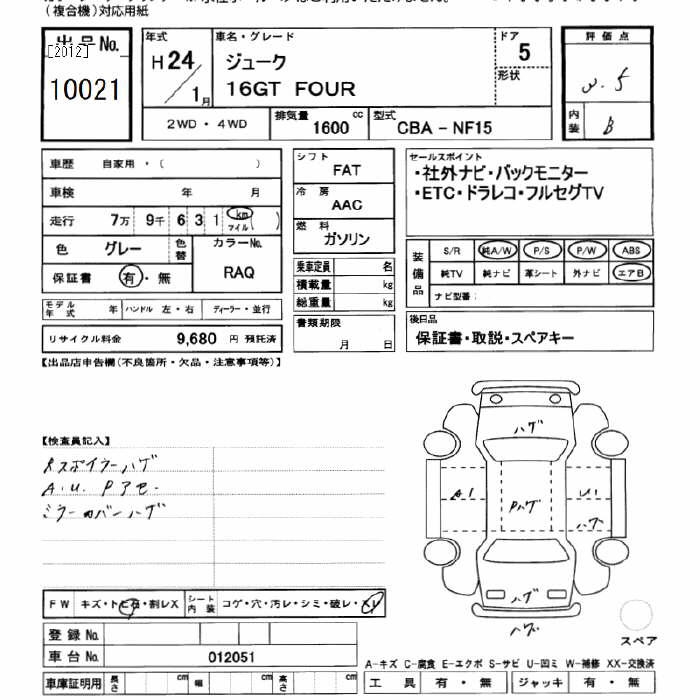 (複合機)対応用紙
出品No.
[2012]
10021
年式
H24/1月
車名・グレード
ジューク
16GT FOUR
ドア
5
形状
評価点
3.5
内装
B
2WD・4WD
排気量 1600 cc
型式 CBA - NF15
車歴 自家用・( )
車検 年 月
走行 7万 9千 6 3 1 km マイル ( )
色 グレー
色替
カラーNo.
RAQ
保証書 有・無
モデル年式 年 ハンドル 左・右 ディーラー・並行
リサイクル料金 9,680 円 預託済
シフト
FAT
冷房
AAC
燃料
ガソリン
乗車定員 名
積載量 kg
総重量 kg
書類期限
月 日
セールスポイント
・社外ナビ・バックモニター
・ETC・ドラレコ・フルセグTV
装備品
S/R 純A/W P/S P/W ABS
純TV 純ナビ 革シート 外ナビ エアB
ナビ型番:
後日品
保証書・取説・スペアキー
【出品店申告欄(不良箇所・欠品・注意事項等)】
【検査員記入】
Rスポイラーハゲ
A.U. Pアセ-
ミラーカバーハゲ
ハゲ
A1
Pハゲ
U1
ハゲ
ハゲ
ハゲ
スペア
FW キズ・トビ石・割レX
シート内装 コゲ・穴・汚レ・シミ・破レ・スレ
登録No.
車台No. 012051
車庫証明用 長さ cm 幅 cm 高さ cm
A-キズ C-腐食 E-エクボ S-サビ U-凹ミ W-補修 XX-交換済
工具 有・無 ジャッキ 有・無